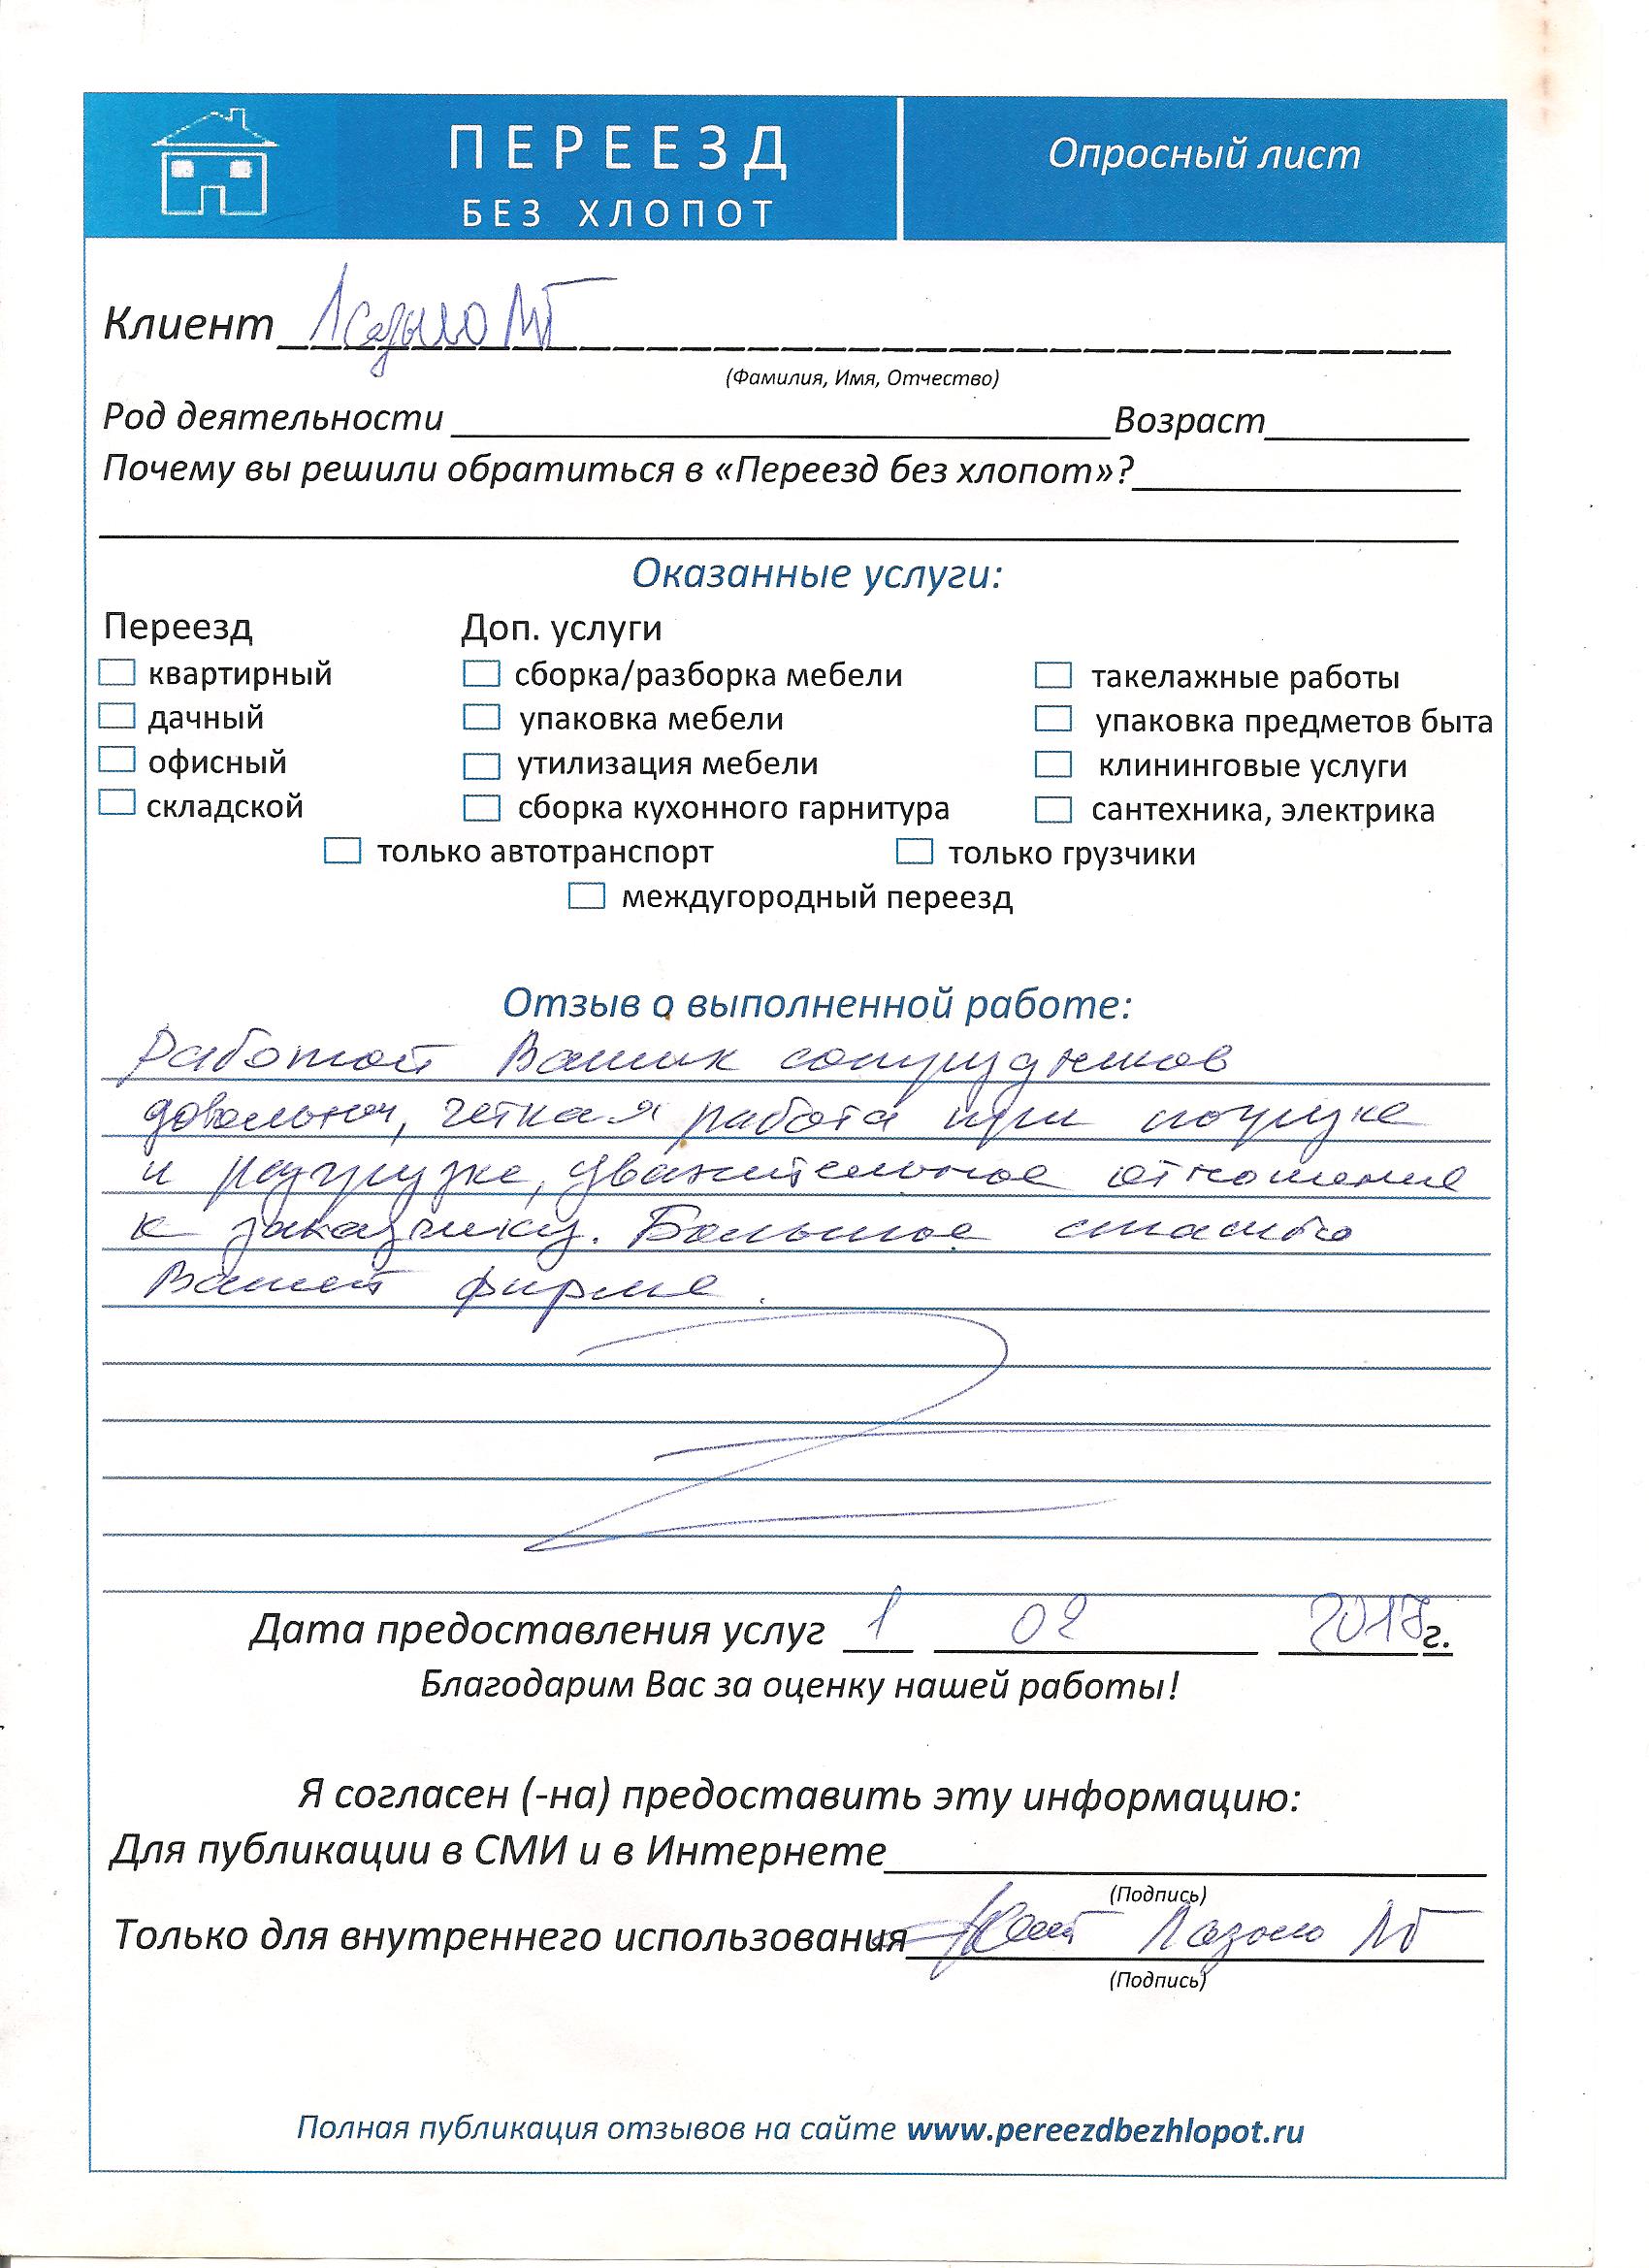 ПЕРЕЕЗД
БЕЗ ХЛОПОТ
Опросный лист
Клиент
(Фамилия, Имя, Отчество)
Род деятельности Возраст
Почему вы решили обратиться в «Переезд без хлопот»?
Оказанные услуги:
Переезд Доп. услуги
квартирный сборка/разборка мебели такелажные работы
дачный упаковка мебели упаковка предметов быта
офисный утилизация мебели клининговые услуги
складской сборка кухонного гарнитура сантехника, электрика
только автотранспорт только грузчики
междугородный переезд
Отзыв о выполненной работе:
Работой Ваших сотрудников
довольны, четкая работа при погрузке
и разгрузке, уважительное отношение
к заказчику. Большое спасибо
Вашей фирме.
Дата предоставления услуг 1 02 2018г.
Благодарим Вас за оценку нашей работы!
Я согласен (-на) предоставить эту информацию:
Для публикации в СМИ и в Интернете
(Подпись)
Только для внутреннего использования
(Подпись)
Полная публикация отзывов на сайте www.pereezdbezhlopot.ru